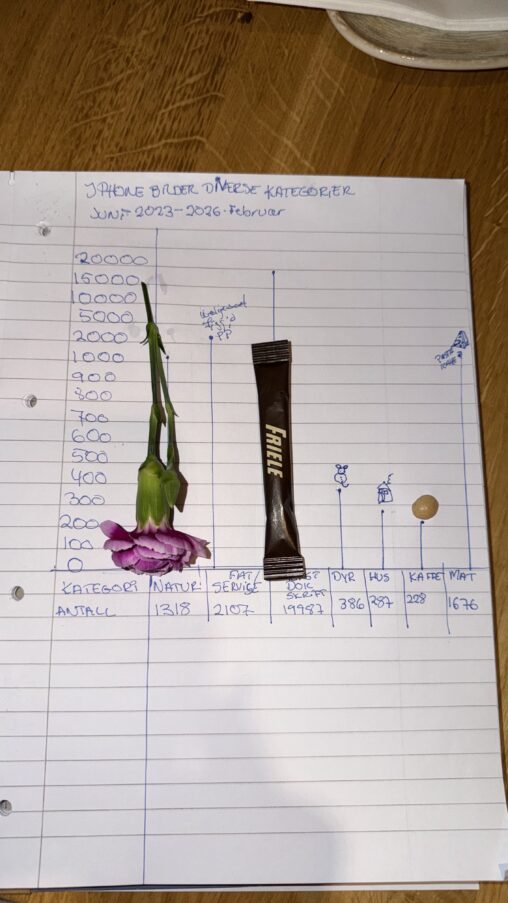 IPHONE BILDER DIVERSE KATEGORIER
JUNI 2023-2026 Februar
20000
15000
10000
5000
2000
1000
900
800
700
600
500
400
300
200
100
0
PP
FRIELE
KATEGORI NATUR FAT/SERVISE DOK SKRIFT DYR HUS KAFFE MAT
ANTALL 1318 2107 19987 386 287 228 1676